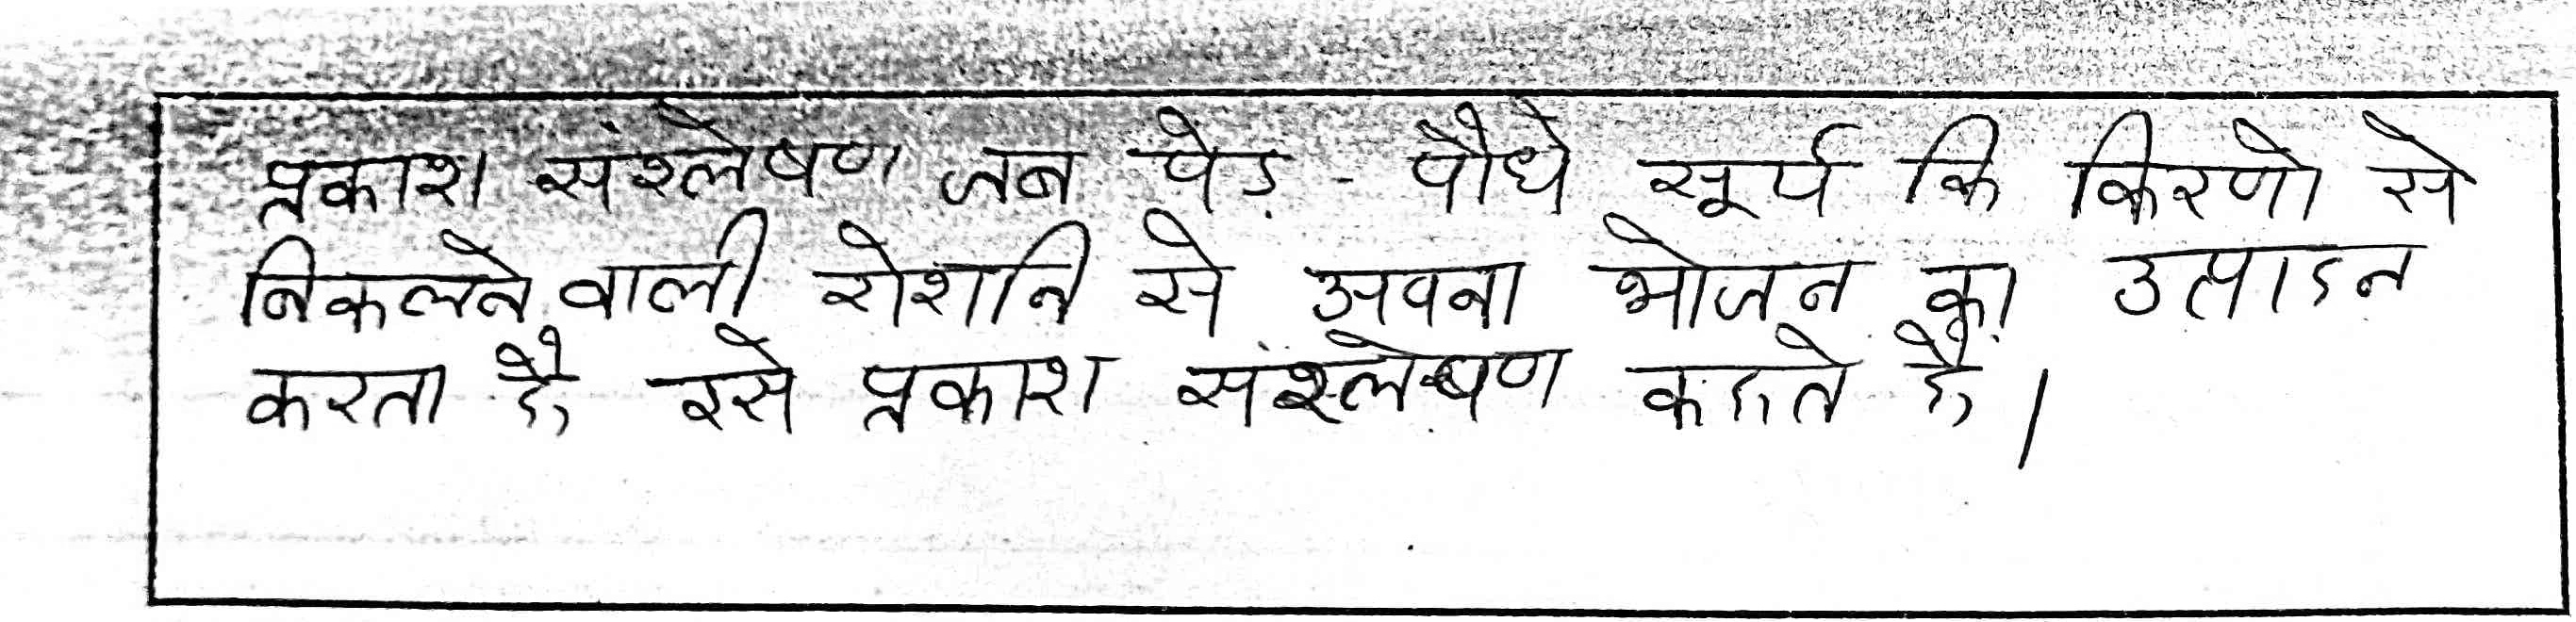 प्रकाश संश्लेषण जब पेड़ - पौधे सूर्य कि किरणो से
निकलने वाली रोशनि से अपना भोजन का उत्पादन
करता है इसे प्रकाश संश्लेषण कहते है।